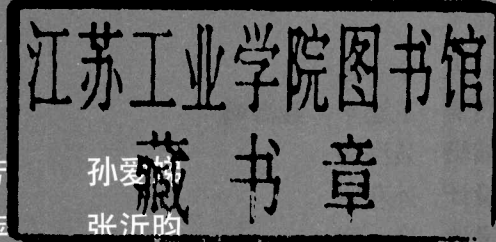 江苏工业学院图书馆
藏书章
孙爱
张沂昀